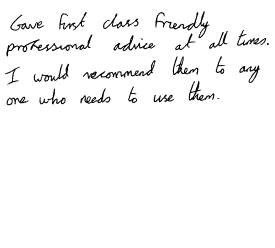 Gave first class friendly
professional advice at all times.
I would recommend them to any
one who needs to use them.